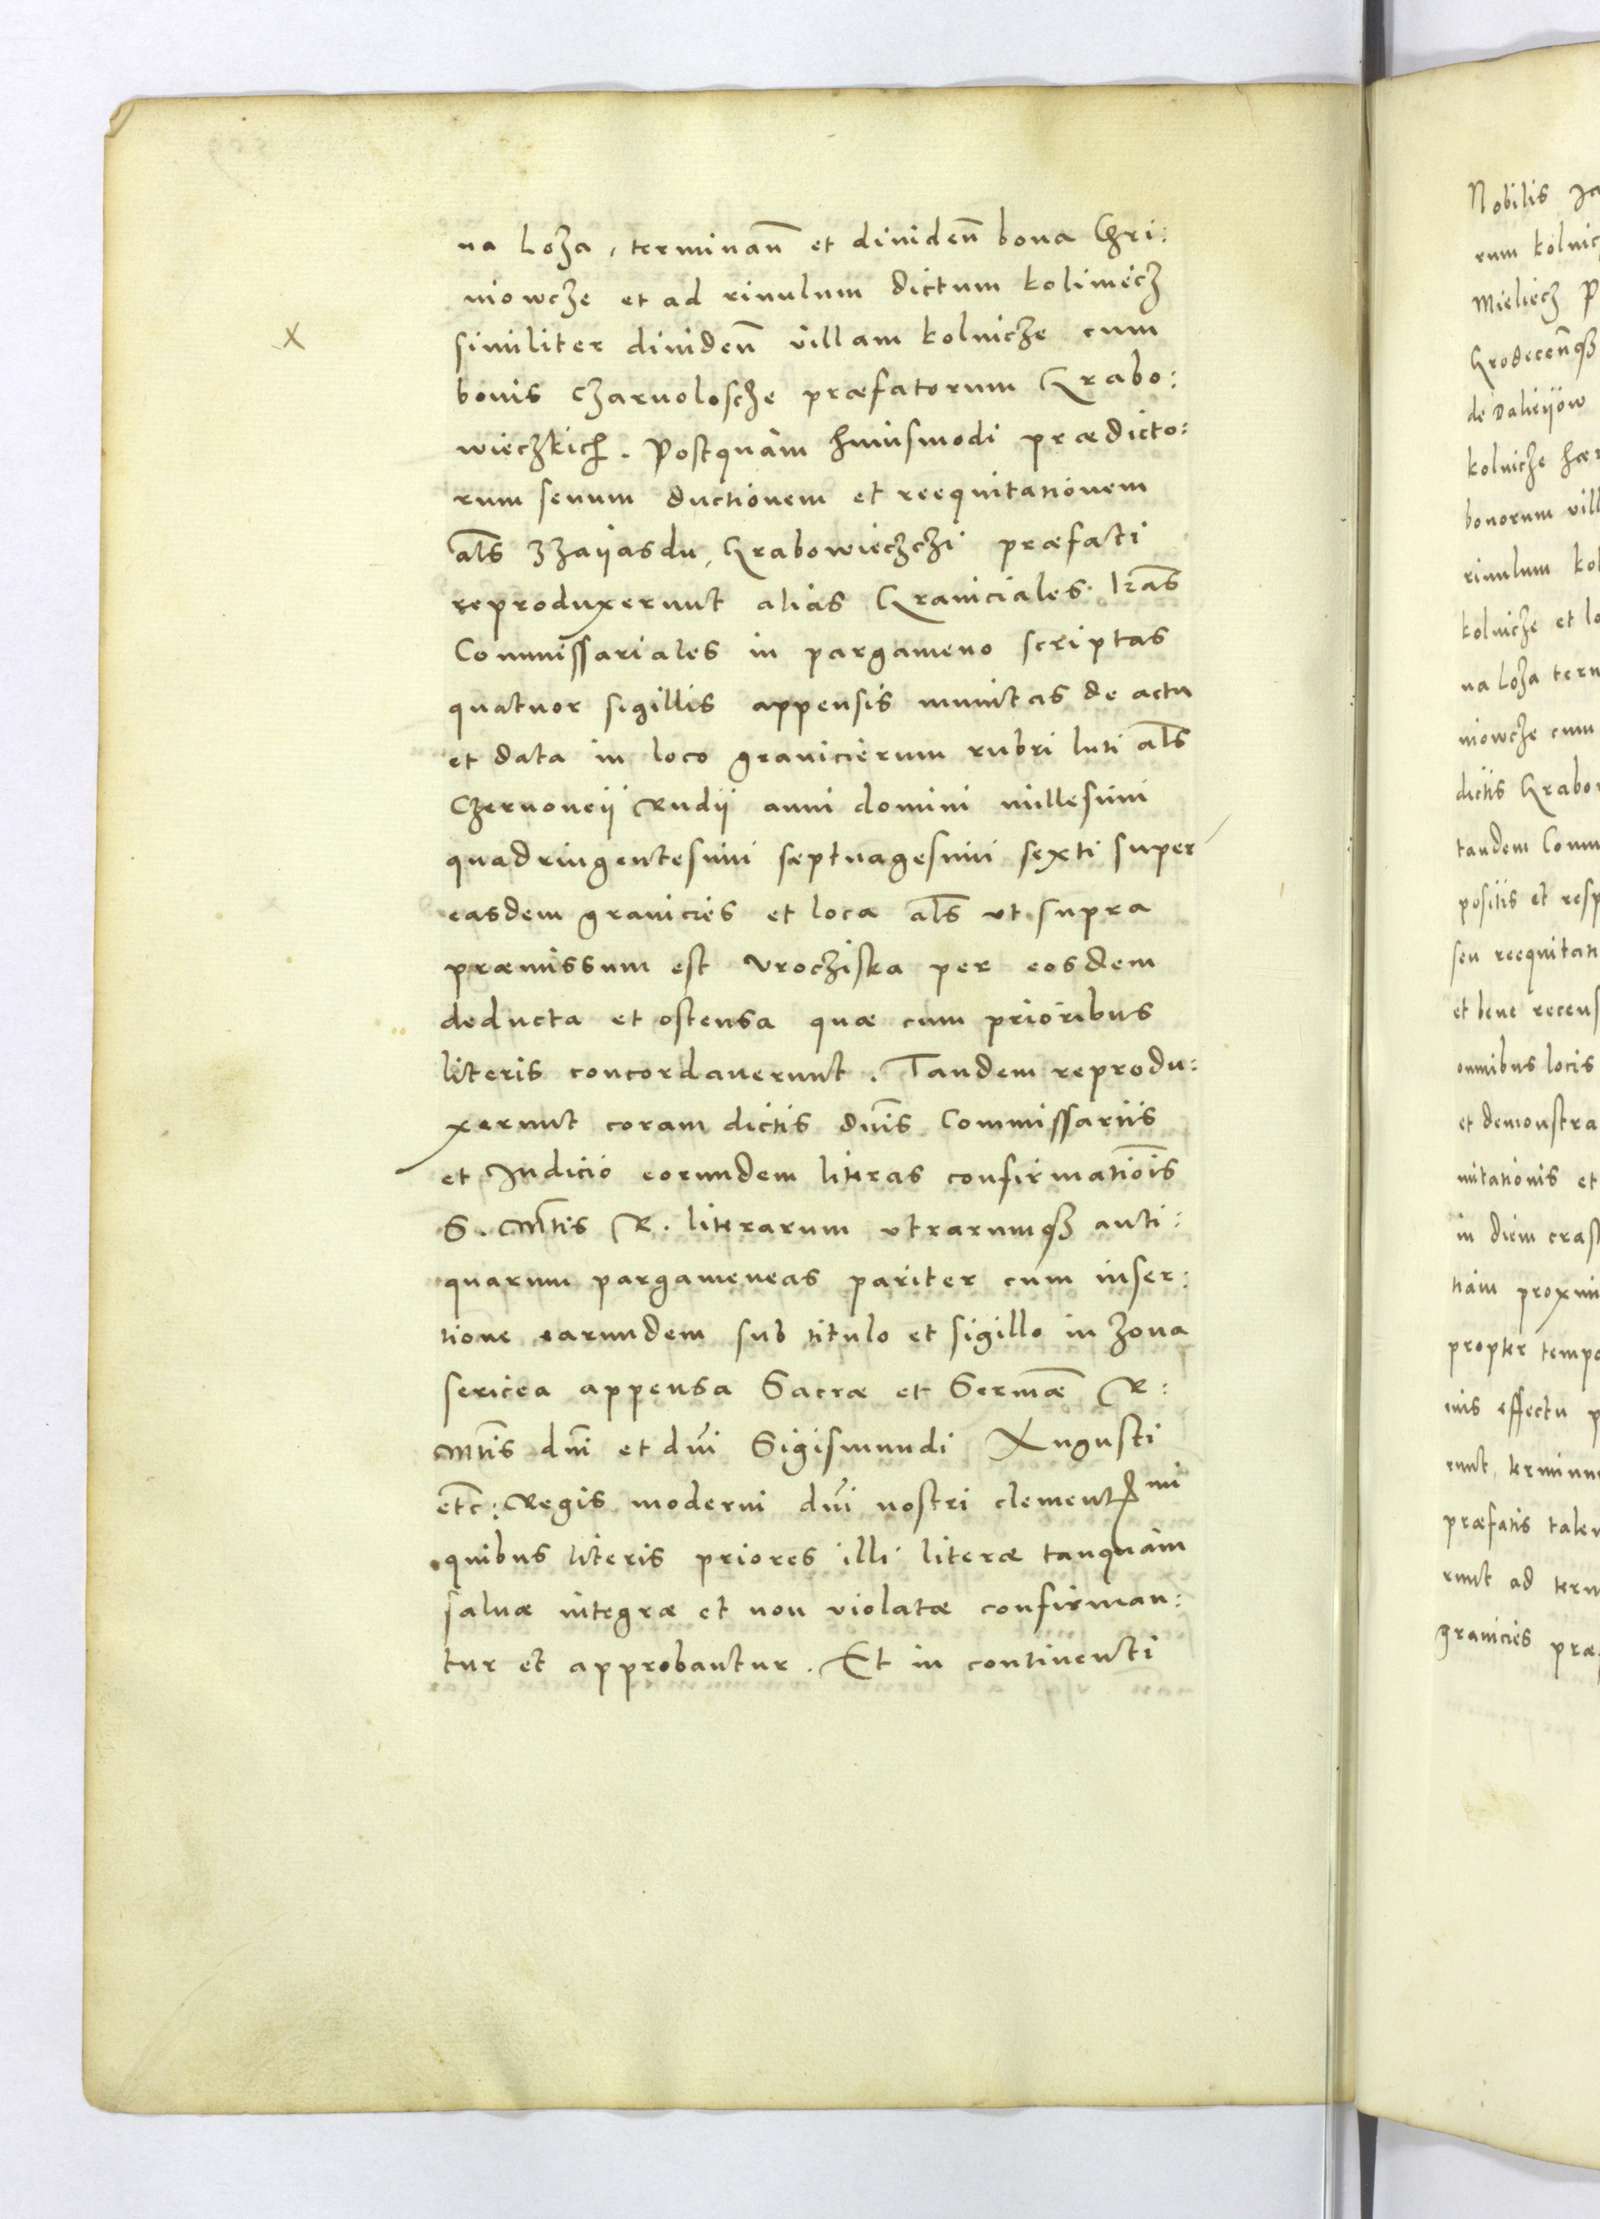 na Loza, terminan̄ et dividen̄ bona Chri:
niowcze et ad rivulum dictum kolimiecz
similiter dividen̄ villam kolnicze cum
bonis Czarnolosche præfatorum Grabo:
wieczkich. Postquam huiusmodi prædicto:
rum senum ductionem et reequitationem
al̄s Zzayasdu, Grabowieczczi præfati
reproduxerunt alias Graniciales. lr̄as
Commissariales in pargameno scriptas
quatuor sigillis appensis munitas de actu
et data in loco granicierum rubri luti al̄s
Czervoneij Rudij anni domini millesimi
quadringentesimi septuagesimi sexti super
easdem granicies et loca al̄s ut supra
præmissum est Vrocziska per eosdem
deducta et ostensa quæ cum prioribus
literis concordaverunt. Tandem reprodu:
xerunt coram dictis dn̄is Commissariis
et Iudicio eorundem literas confirmatiōis
S. Mt̄is R. literarum utrarumqȝ anti:
quarum pargameneas pariter cum inser:
tione earundem sub titulo et sigillo in zona
sericea appensa Sacræ et Serm̄æ R:
Mt̄is dn̄i et dn̄i Sigismundi Augusti
et̄c: Regis moderni dn̄i nostri clement̄mi
quibus literis priores illi literæ tanquam
salvæ integræ et non violatæ confirman:
tur et approbantur. Et in continenti
X
Nobilis
rum kolnicz
Mieliecz P
Grodecen̄qȝ
de Daliejow
kolnicze hær
bonorum vill
rivulum kol
kolnicze et lo
na Loza term
niowcze cum
dictis Grabo
tandem Comm
positis et resp
seu reequitati
et bene recens
omnibus locis
et demonstra
mitationis et
in diem crast
nam proxim
propter tempo
nis effectu p
runt, terminu
præfatis talem
runt ad term
granicies præ